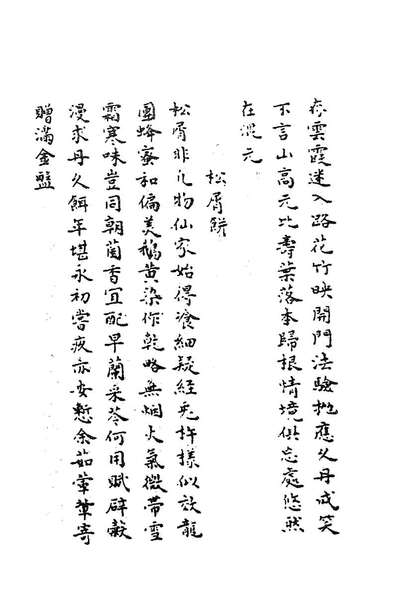 雲霞迷入路花竹映開門法驗桃應久丹成笑
不言山高元比壽葉落本歸根情境俱忘處悠然
在混元
松屑餅
松屑非凡物仙家始得飡細疑經兎杵樣似效龍
團蜂蜜和偏美鵝黃染作乾略無烟火氣微帶雪
霜寒味豈同朝菌香宜配早蘭采苓何用賦辟穀
漫求丹久餌年堪永初嘗疾亦安慙余茹葷輩寄
贈滿金盤